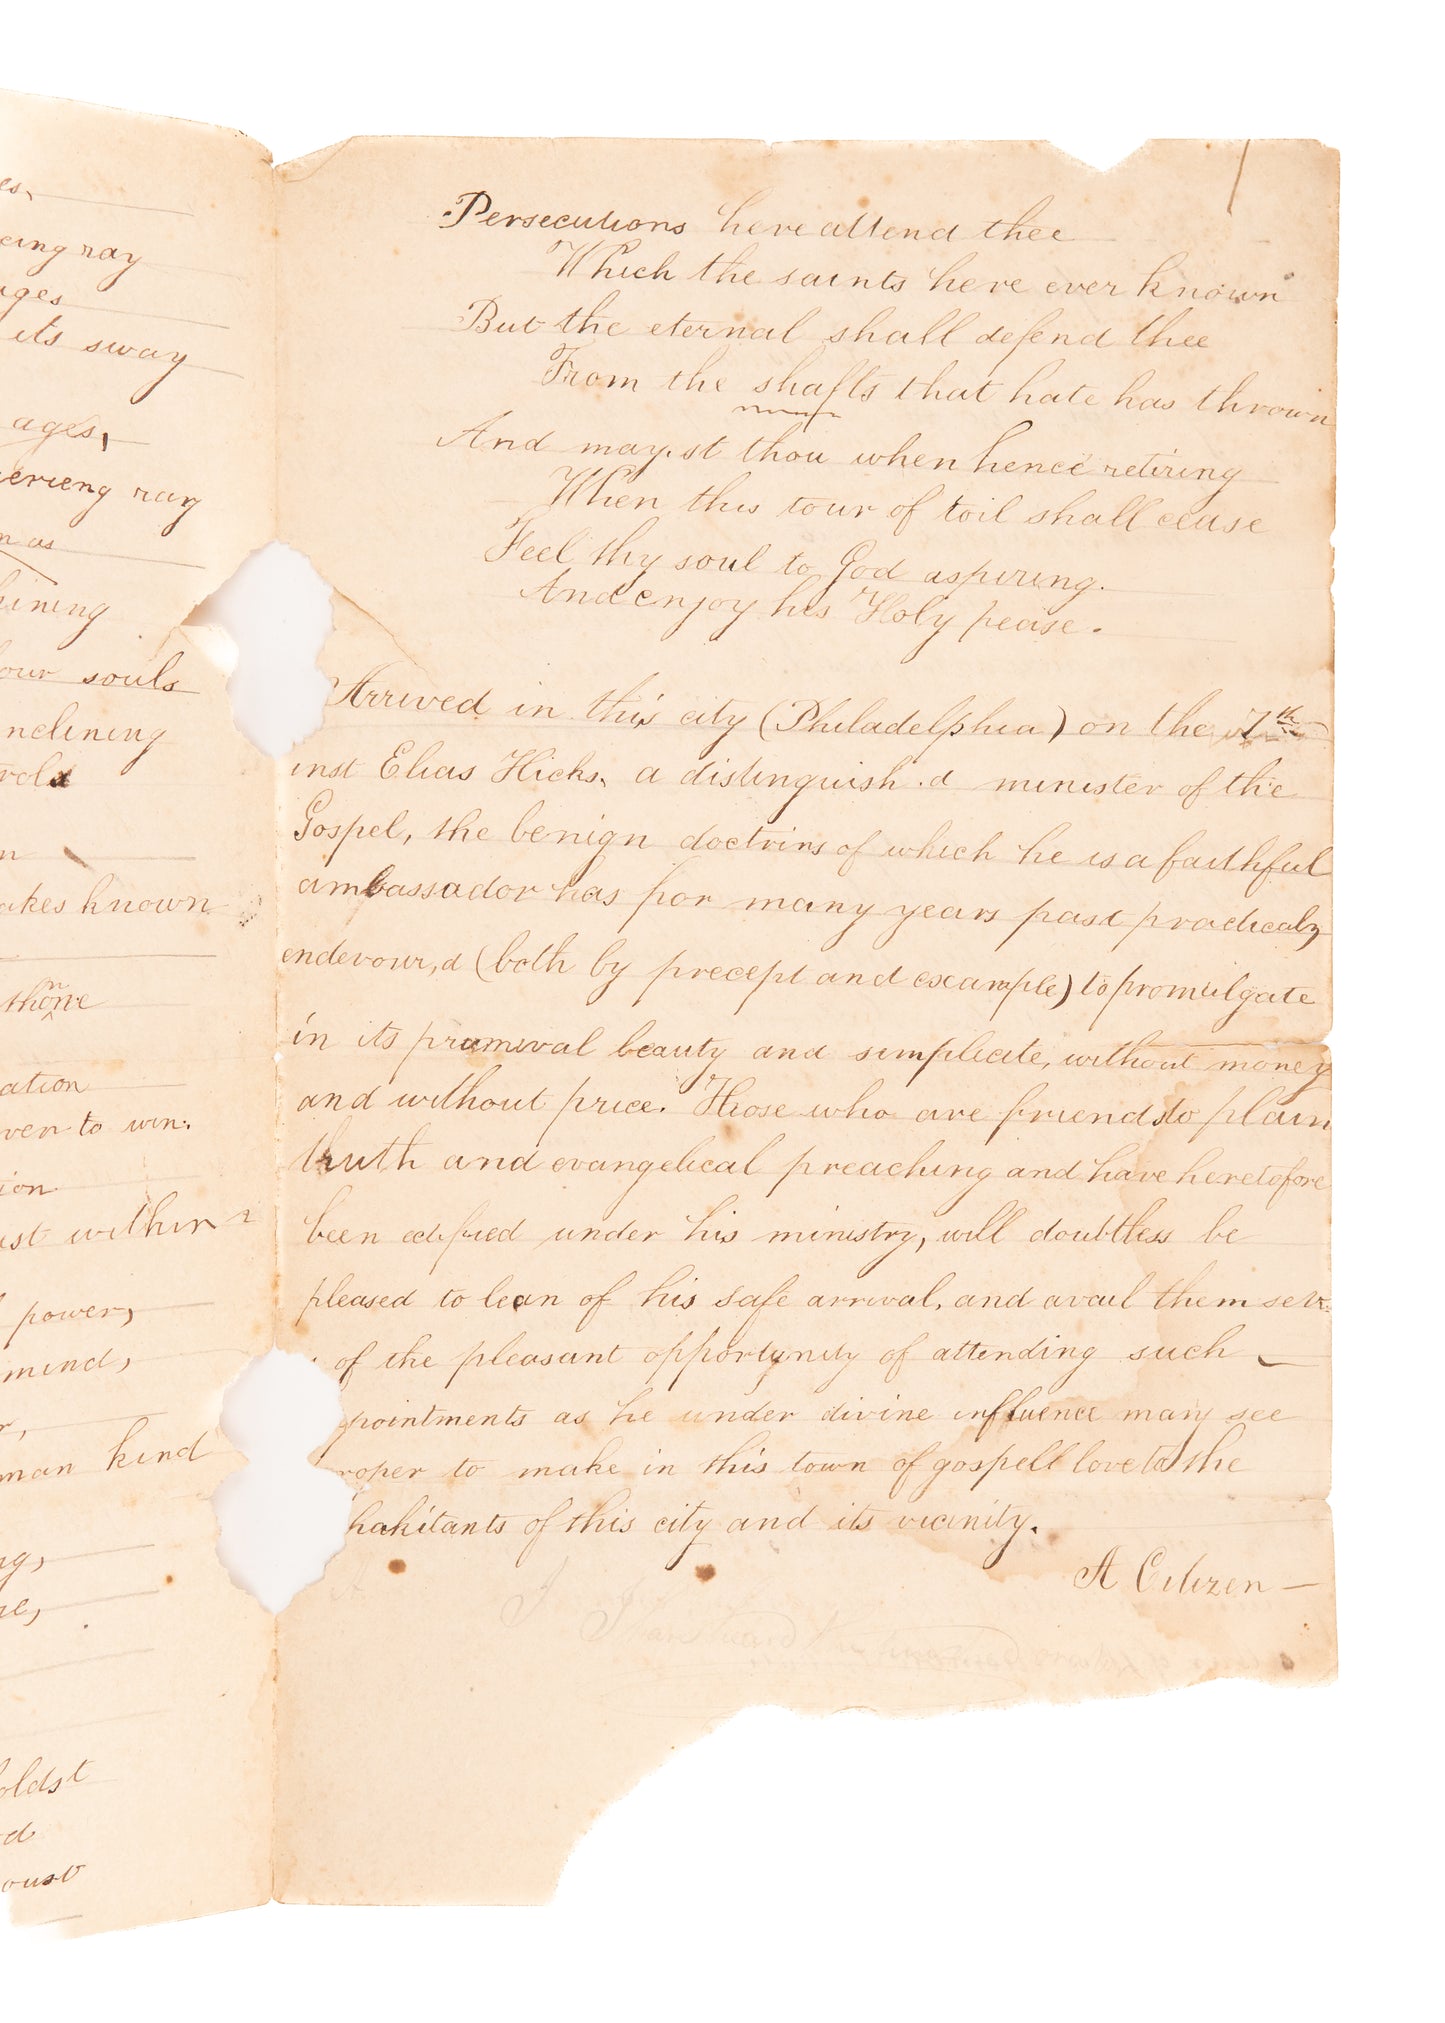 es,
ing ray
ages
its sway
ages,
ray
as
hining
our souls
nclining
n
akes known
thone
ation
ven to win.
ion
ist within
power,
mind,
r,
man kind
ng,
ne,
oldst
d
oust
Persecutions here attend thee
Which the saints here ever known
But the eternal shall defend thee
From the shafts that hate has thrown
And may,st thou when hence retiring
When this tour of toil shall cease
Feel thy soul to God aspiring.
And enjoy his Holy pease.
Arrived in this city (Philadelphia) on the 7th
inst Elias Hicks, a distinguish.d minister of the
Gospel, the benign doctrins of which he is a faithful
ambassador has for many years past practicaly
endevour,d (both by precept and example) to promulgate
in its primival beauty and simplicite, without money
and without price. Those who are friends to plain
truth and evangelical preaching and have heretofore
been edified under his ministry, will doubtless be
pleased to lean of his safe arrival, and avail themselv
of the pleasant opportunity of attending such
ppointments as he under divine influence may see
roper to make in this town of gospell love to the
habitants of this city and its vicinity.
A Citizen